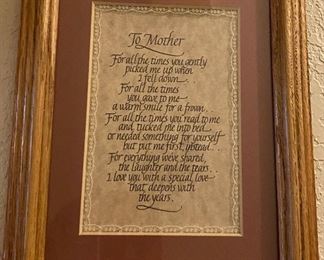 To Mother
For all the times you gently
picked me up when
I fell down . . .
For all the times
you gave to me
a warm smile for a frown.
For all the times you read to me
and, tucked me into bed
or needed something for yourself
but put me first, instead . . .
For everything we've shared,
the laughter and the tears
I love you with a special love
that deepens with
the years.